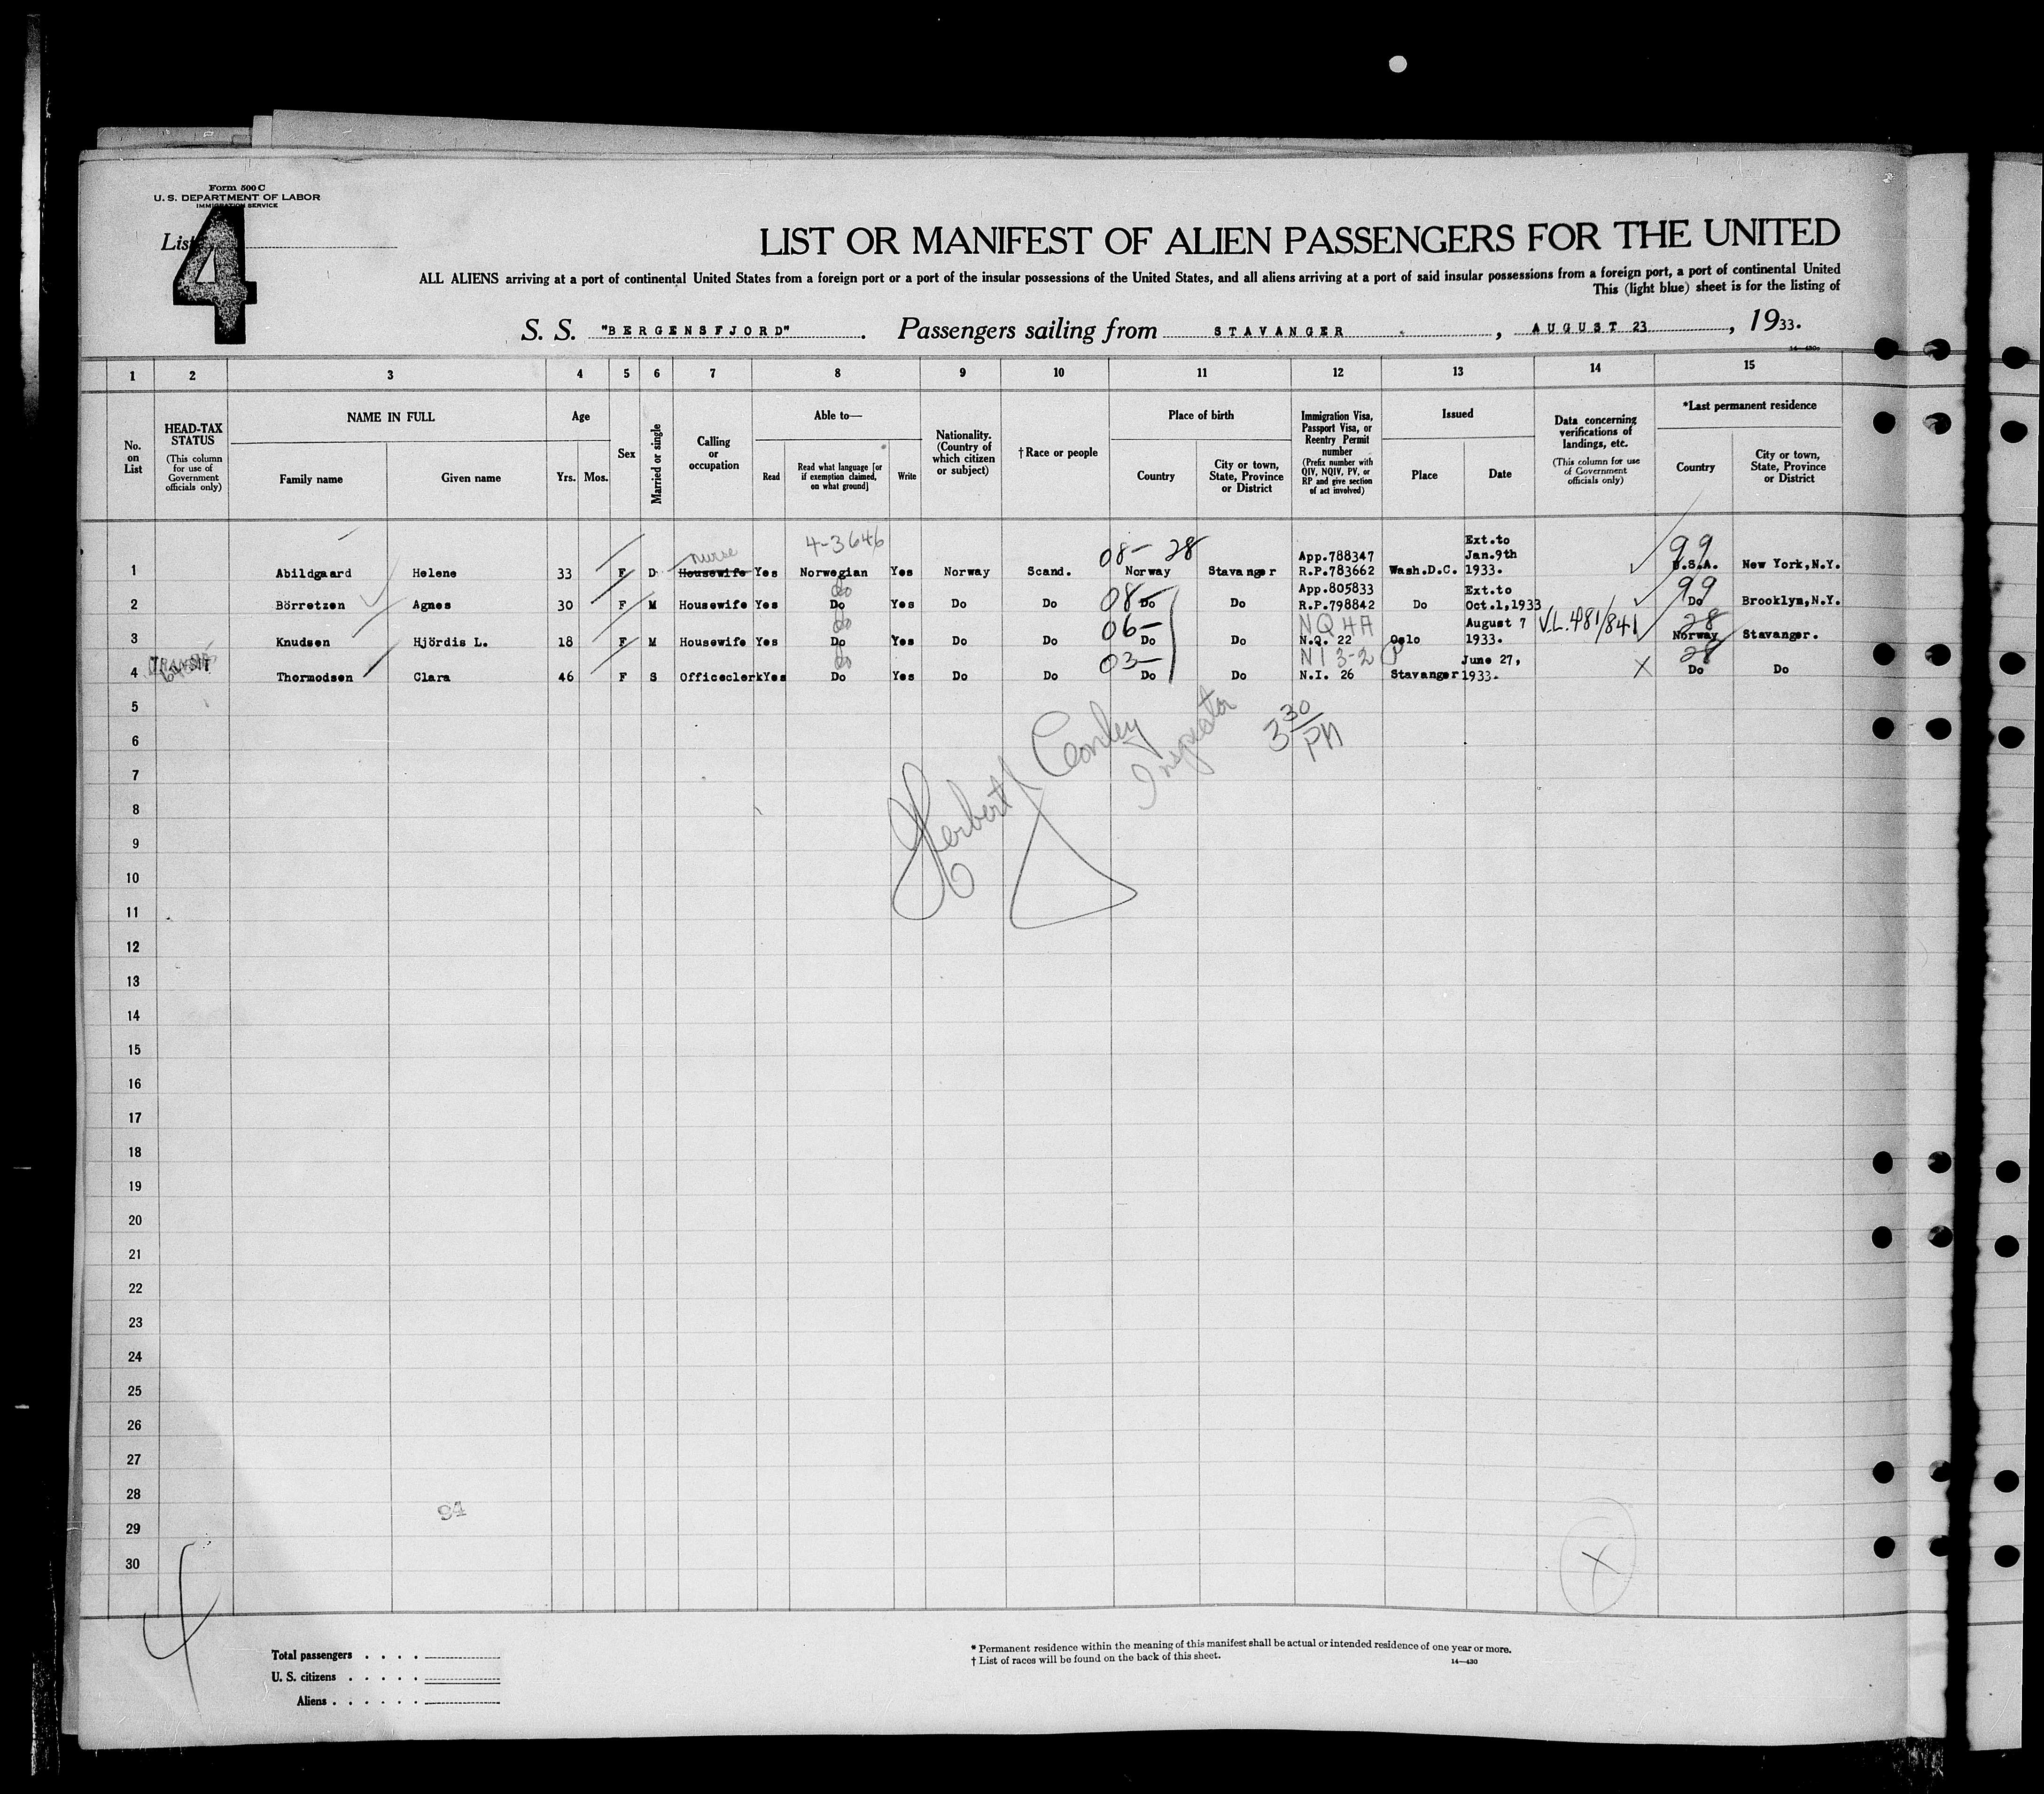 Form 500 C
U. S. DEPARTMENT OF LABOR
IMMIGRATION SERVICE
List
4
LIST OR MANIFEST OF ALIEN PASSENGERS FOR THE UNITED
ALL ALIENS arriving at a port of continental United States from a foreign port or a port of the insular possessions of the United States, and all aliens arriving at a port of said insular possessions from a foreign port, a port of continental United
This (light blue) sheet is for the listing of
S. S. "BERGENSFJORD". Passengers sailing from STAVANGER, AUGUST 23, 1933.
14—430
1 2 3 4 5 6 7 8 9 10 11 12 13 14 15
No. on List
HEAD-TAX STATUS
(This column for use of Government officials only)
NAME IN FULL
Family name Given name
Age
Yrs. Mos.
Sex
Married or single
Calling or occupation
Able to—
Read Read what language [or if exemption claimed, on what ground] Write
Nationality. (Country of which citizen or subject)
† Race or people
Place of birth
Country City or town, State, Province or District
Immigration Visa, Passport Visa, or Reentry Permit number
(Prefix number with QIV, NQIV, PV, or RP and give section of act involved)
Issued
Place Date
Data concerning verifications of landings, etc.
(This column for use of Government officials only)
*Last permanent residence
Country City or town, State, Province or District
nurse 4-3646 08- 28 99
1 Abildgaard Helene 33 F D Housewife Yes Norwegian Yes Norway Scand. Norway Stavanger App.788347 R.P.783662 Wash.D.C. Ext.to Jan.9th 1933. U.S.A. New York,N.Y.
do 08- 99
2 Börretzen Agnes 30 F M Housewife Yes Do Yes Do Do Do Do App.805833 R.P.798842 Do Ext.to Oct.1,1933 Do Brooklyn,N.Y.
do 06- NQ 4A V.L.481/841 28
3 Knudsen Hjördis L. 18 F M Housewife Yes Do Yes Do Do Do Do N.Q. 22 Oslo August 7 1933. Norway Stavanger.
TRANSIT do 03- NI 3-2 28
4 Thormodsen Clara 46 F S Officeclerk Yes Do Yes Do Do Do Do N.I. 26 Stavanger June 27, 1933. X Do Do
5
6
7
8
9
10
11
12
13
14
15
16
17
18
19
20
21
22
23
24
25
26
27
28
29
30
Herbert J Conley
Inspector
3 30 PM
94
X
4
Total passengers
U. S. citizens
Aliens
* Permanent residence within the meaning of this manifest shall be actual or intended residence of one year or more.
† List of races will be found on the back of this sheet.
14—430